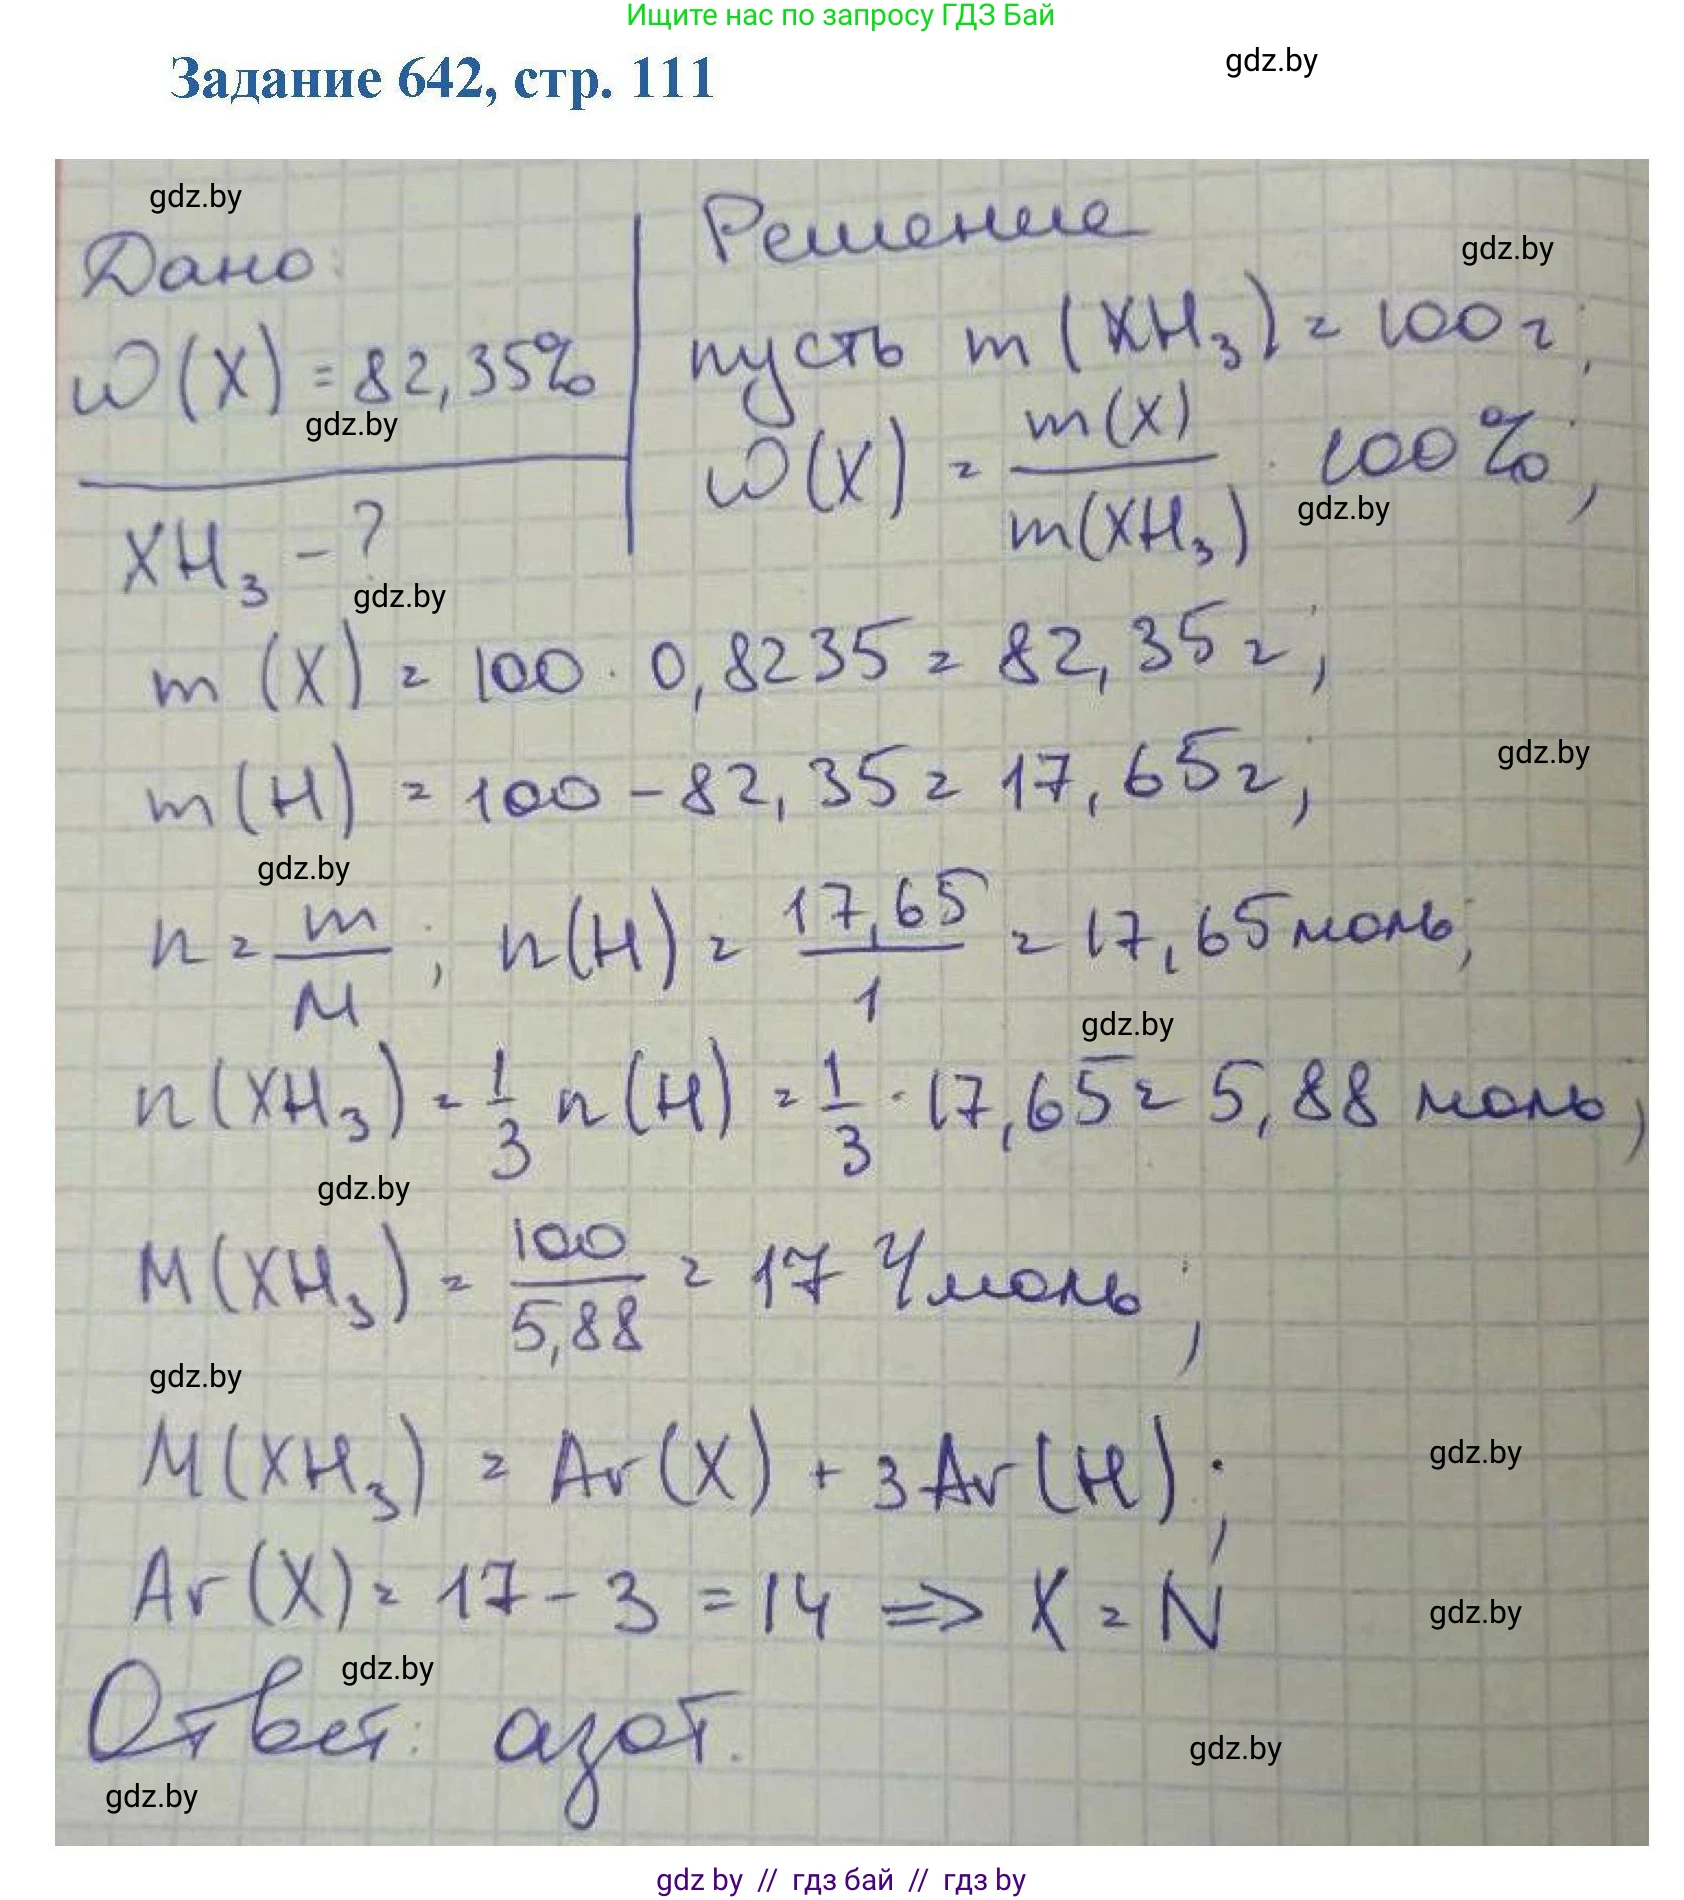 Ищите нас по запросу ГДЗ Бай
gdz.by
Задание 642, стр. 111
gdz.by
Дано:
ω(X) = 82,35%
gdz.by
XH₃ – ?
gdz.by
Решение
gdz.by
пусть m(XH₃) = 100 г;
ω(X) = m(X)/m(XH₃) · 100%;
gdz.by
m(X) = 100 · 0,8235 = 82,35 г;
gdz.by
m(H) = 100 – 82,35 = 17,65 г;
gdz.by
n = m/M; n(H) = 17,65/1 = 17,65 моль;
gdz.by
n(XH₃) = 1/3 n(H) = 1/3 · 17,65 = 5,88 моль;
gdz.by
M(XH₃) = 100/5,88 = 17 г/моль;
gdz.by
M(XH₃) = Ar(X) + 3Ar(H);
gdz.by
Ar(X) = 17 – 3 = 14 => X = N
gdz.by
gdz.by
Ответ: азот.
gdz.by
gdz.by
gdz by // гдз бай // gdz by